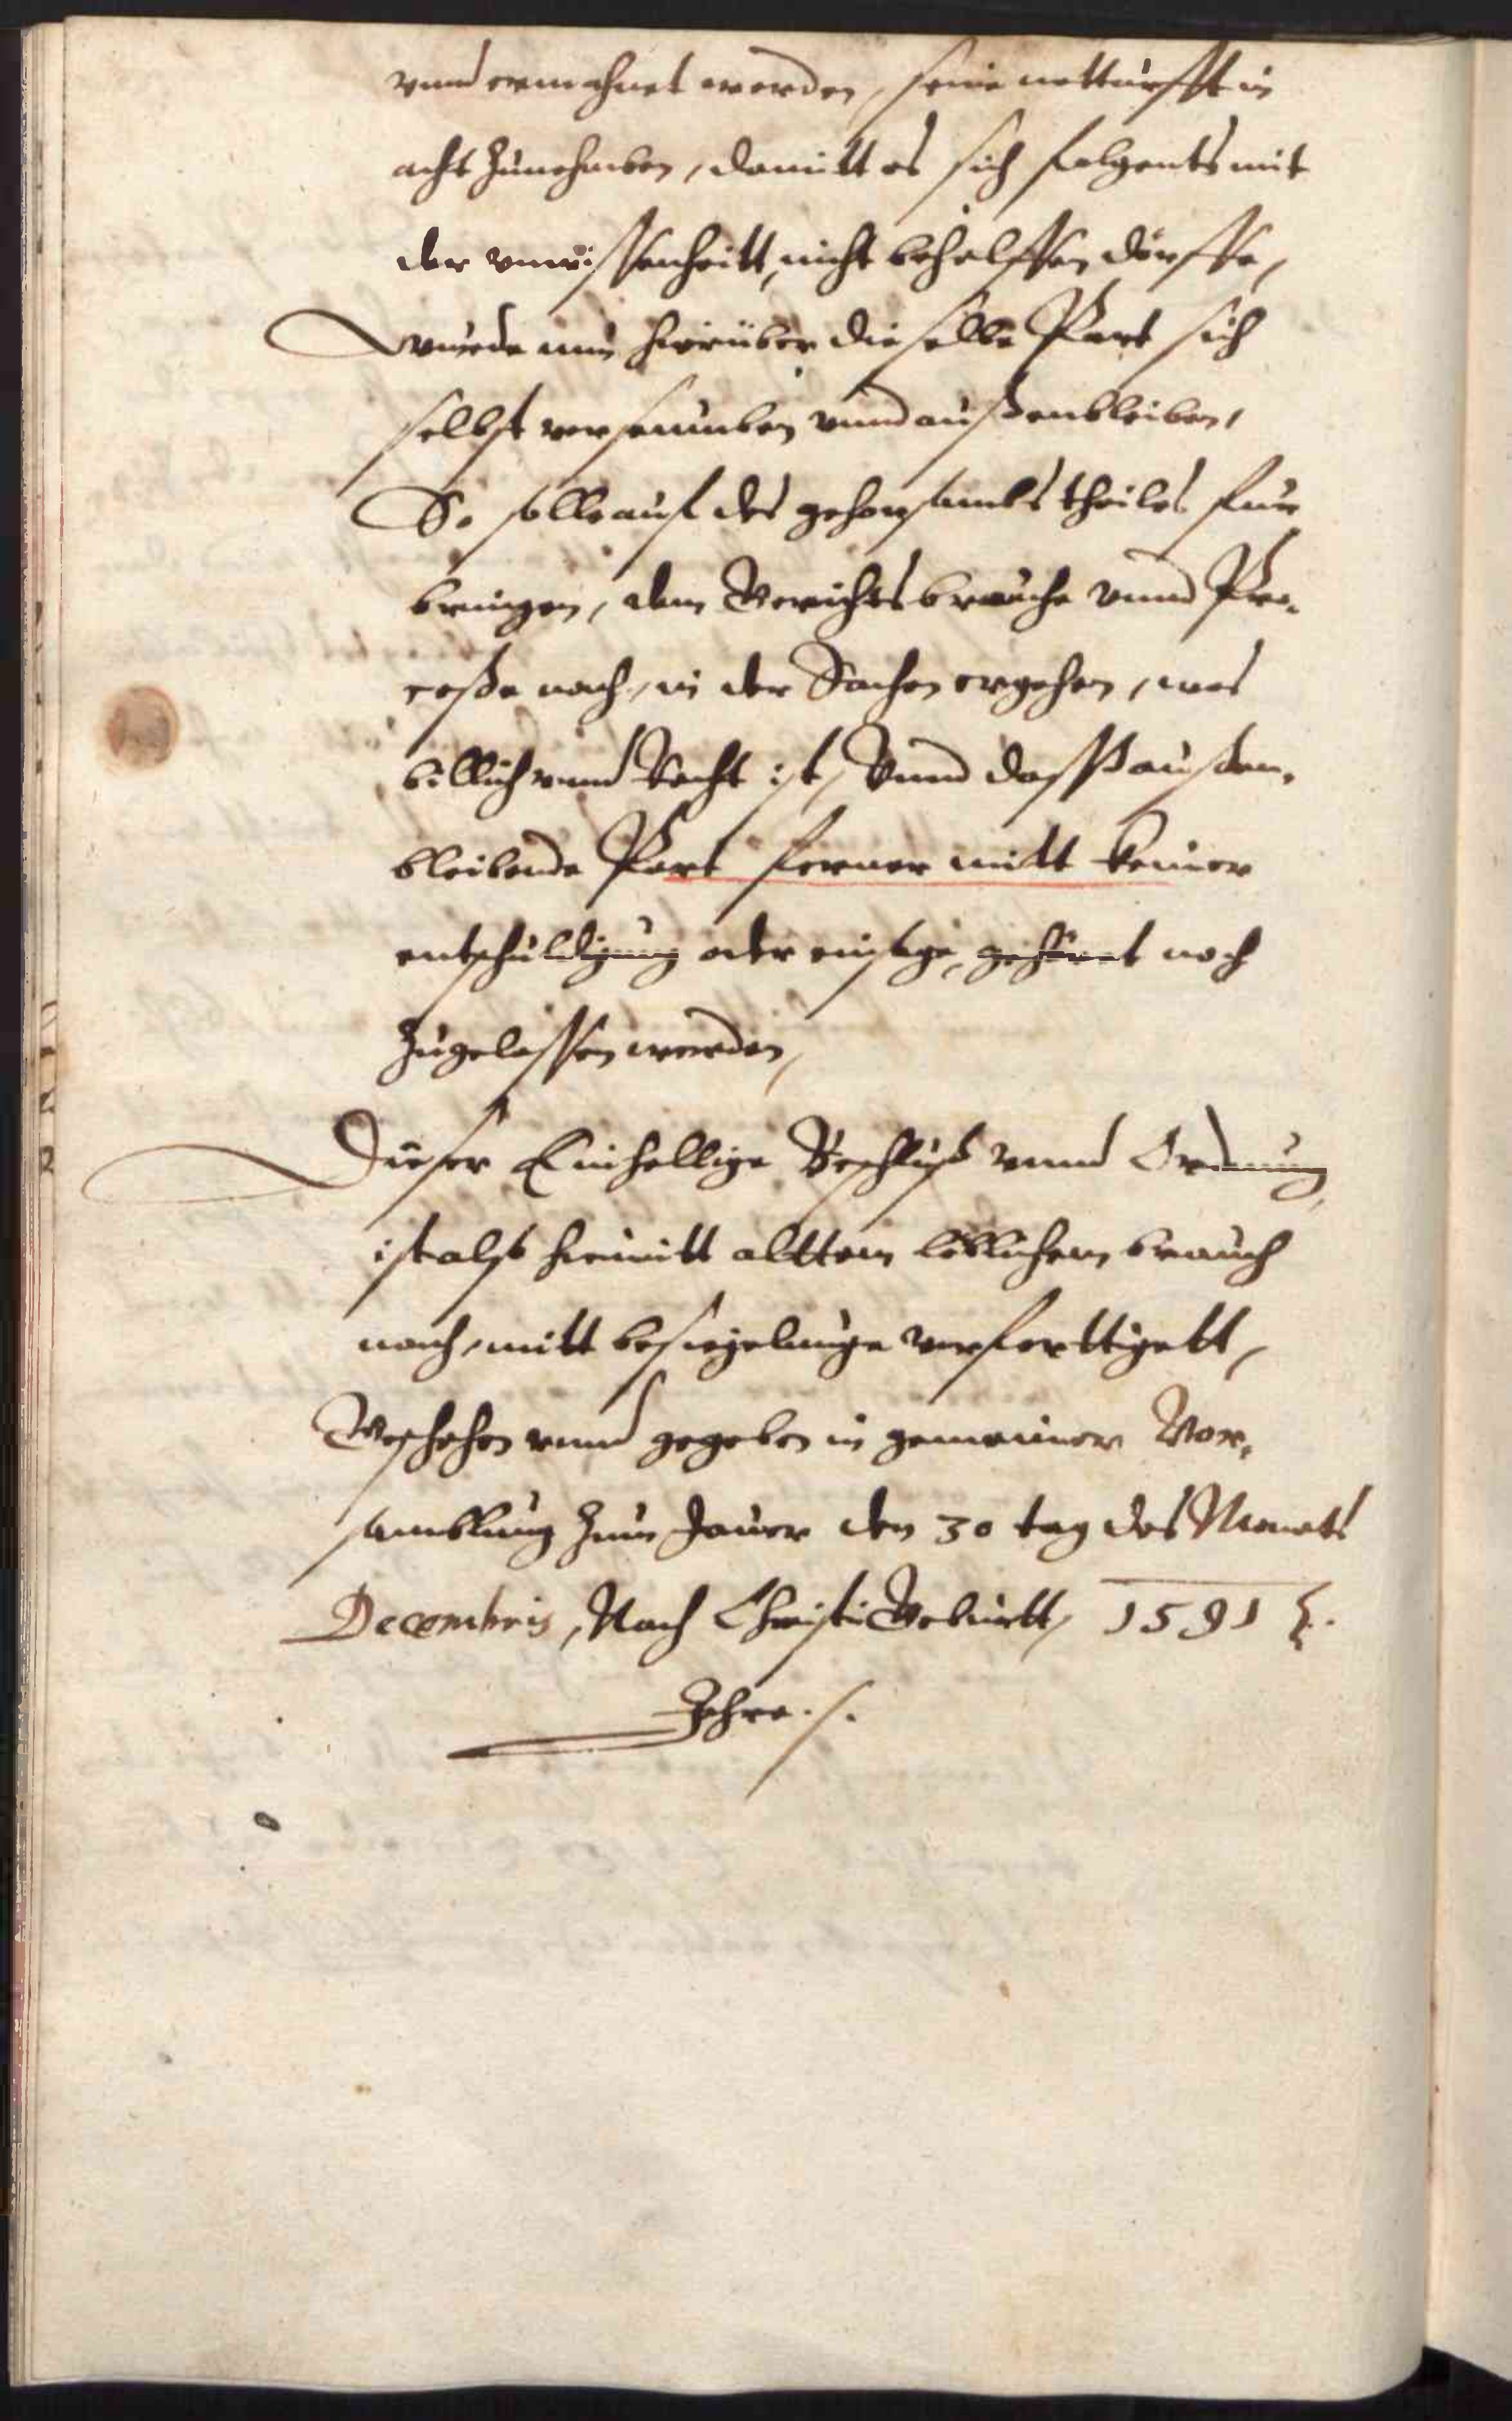 vnnd ermahnet werden, seine notturfft in
acht zunehmben, damitt es sich folgents mit
der vnwissenheitt, nicht behelffen dörffe,
Wurde nun hierüber dieselbe Part sich
selbst verseumben vnnd außenbleiben,
So solle auf des gehorsambs theiles fur
bringen, dem Gerichtsbrauche vnnd Pro-
ceße nach, in der Sachen ergehen, was
billich vnnd Recht ist, Vnnd dasß außen-
bleibende Part ferner mitt keiner
entschuldigung oder einsage, gehöret noch
zugelassen werden,
Dieser Einhellige Beschluß vnnd Ordnung
ist also hiemitt alttem löblichem brauch
nach, mitt besiegelunge verferttigett,
Geschehen vnnd gegeben in gemeiner Vor-
samblung zum Jauer den 30 tag des Monats
Decembris, Nach Christi Geburtt, 1591
Jahre.